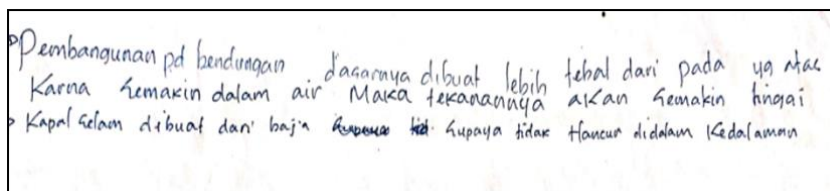 Pembangunan pd bendungan dasarnya dibuat lebih tebal dari pada yg atas
Karna semakin dalam air Maka tekanannya akan semakin tinggi
Kapal selam dibuat dari baja supaya tidak Hancur didalam Kedalaman